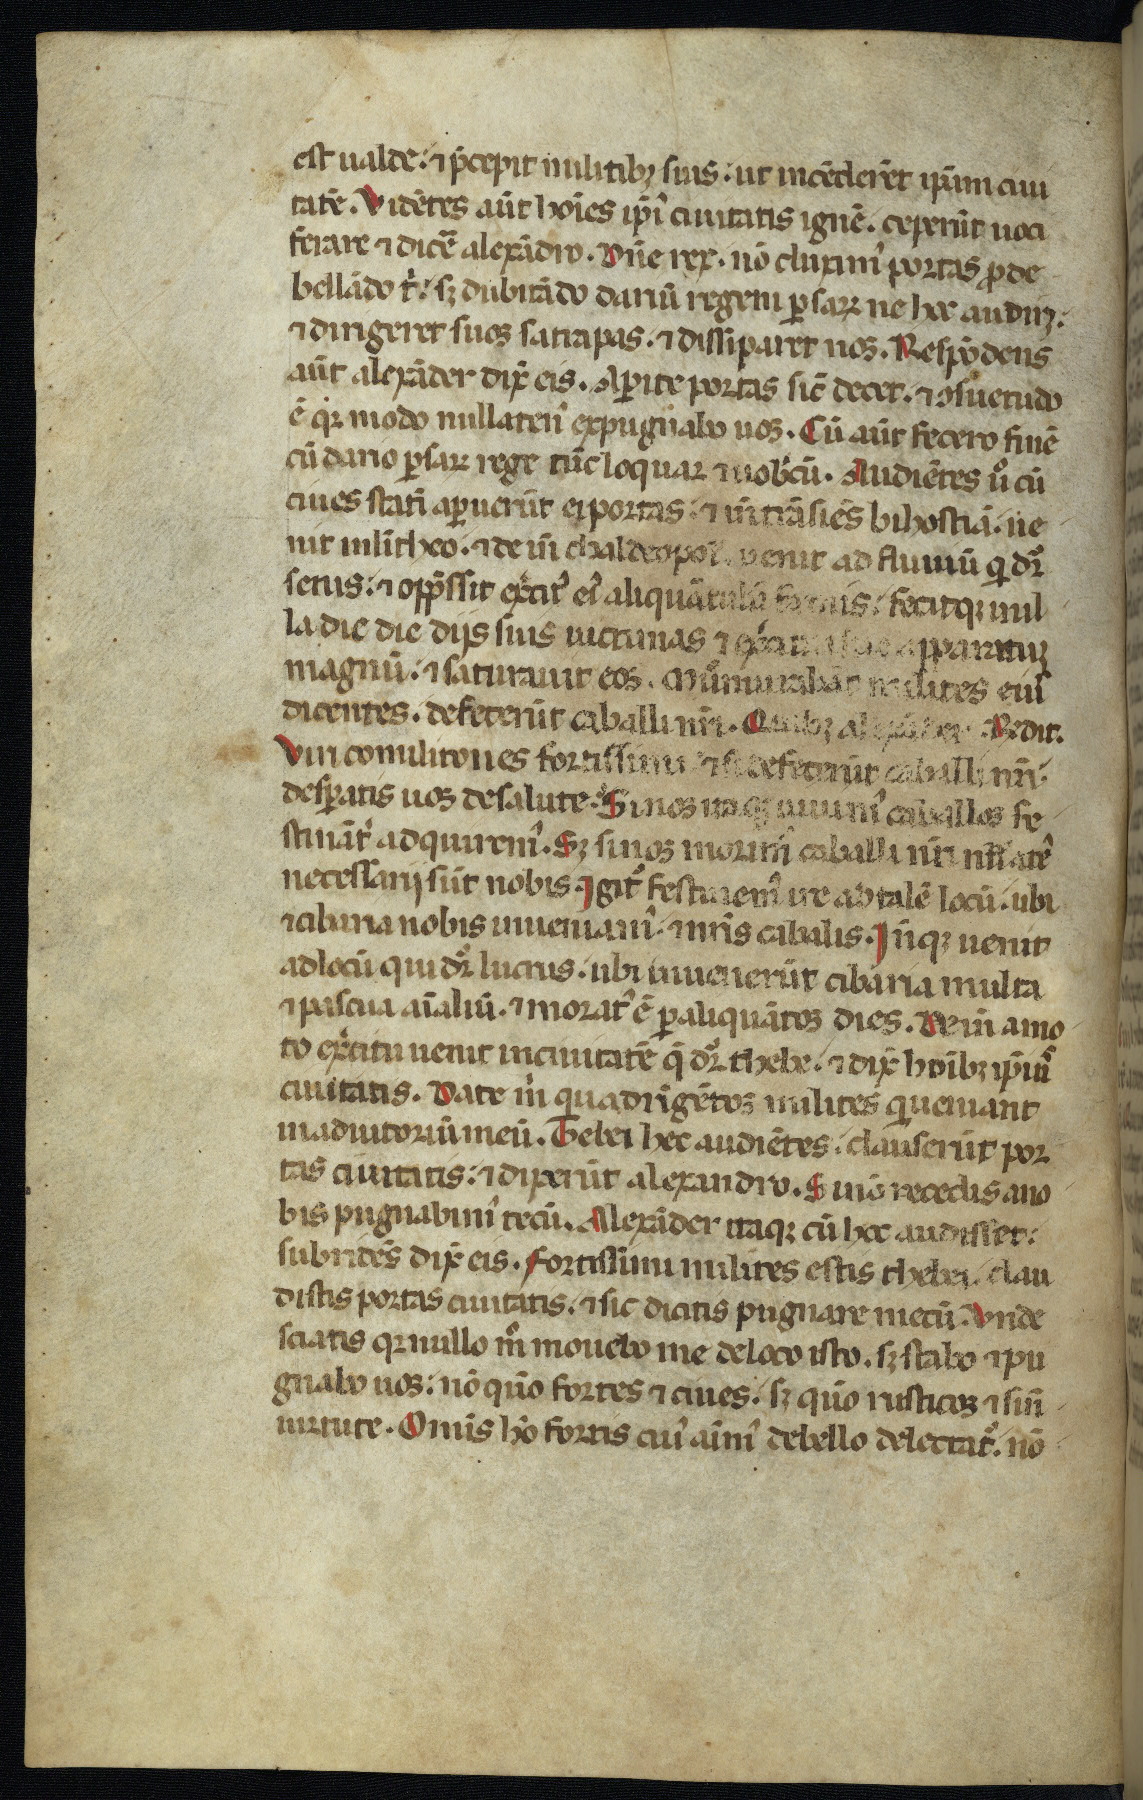 est ualde. ⁊ p̄cepit militibꝫ suis. ut incēderēt ip̄am ciui
tatē. Vidētes aūt hoīes ip̄iꝰ ciuitatis ignē. ceperūt uoci
ferare ⁊ dicē alexādro. Dn̄e rex. nō clusimꝰ portas ꝓ de
bellādo t͛. sꝫ dubitādo dariū regem ꝑsaꝝ ne hec audiꝫ.
⁊ dirigeret suos satrapas. ⁊ dissiparet nos. Respōdens
aūt alexāder dix̄ eis. Aꝑite portas sic̄ decet. ⁊ ꝯsuetudo
ē qꝛ modo nullatenꝰ expugnabo uos. Cū aūt fecero finē
cū dario ꝑsaꝝ rege tūc loquar ⁊ uobcū. Audiētes u͛o cū
ciues statī aꝑuerūt ei portas. ⁊ in̄ trāsiēs bihostiā. ue
nit ī olītheo. ⁊ de in̄ chaldeopol. uenit ad fluuiū qͥ dr̄
senis. ⁊ opp̄ssit ex̄citꝰ eiꝰ aliquātulū famis. fecitqꝫ mil
la die die dijs suis uictimas ⁊ apparatuꝫ
magnū. ⁊ saturauit eos. Mūmurabāt milites eiꝰ
dicentes. defecerūt caballi nr̄i. Quibꝫ alexāder Redit.
Viri comilitones fortissimi ⁊ si defecerūt caballi nr̄i.
desꝑatis uos de salute. Si nos itaqꝫ uiuimꝰ caballos fe
stinātꝰ adquiremꝰ. Sꝫ si nos morimꝰ caballi nr̄i nll̄atēꝰ
necessarij sūt nobis. Igit͛ festinemꝰ ire ad talē locū. ubi
⁊ cibaria nobis inueniamꝰ. ⁊ nr̄is cabalis. In̄qꝫ uenit
ad locū qui dr̄ lucrus. ubi inuenerūt cibaria multa
⁊ pascua aīaliū. ⁊ moratꝰ ē ꝑ aliquātos dies. Dein̄ amo
to ex̄citu uenit in ciuitatē q̄ dr̄ thebe. ⁊ dix̄ hoībꝫ ip̄iꝰ
ciuitatis. Date m̄ quadringētos milites qͥ ueniant
in adiutoriū meū. Thebei hec audiētes. clauserūt por
tas ciuitatis. ⁊ dixerūt alexandro. Si nō recedis a no
bis pugnabimꝰ tecū. Alexāder itaqꝫ cū hec audisset.
subridēs dix̄ eis. fortissimi milites estis thebei. clau
distis portas ciuitatis. ⁊ sic dicitis pugnare mecū. Vnde
sciatis qꝛ nullo m̊ mouebo me de loco isto. sꝫ stabo ⁊ pu
gnabo uos. nō quō fortes ⁊ ciues. sꝫ quō rusticos ⁊ sin̄
uirtute. Omīs hō fortis cuiꝰ aīmꝰ de bello delectat͛. nō